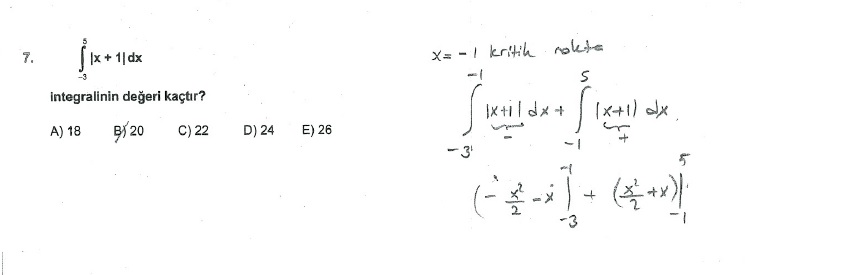 7. ∫₋₃⁵ |x + 1| dx
integralinin değeri kaçtır?
A) 18 B) 20 C) 22 D) 24 E) 26
x = -1 kritik nokta
∫₋₃⁻¹ |x+1| dx + ∫₋₁⁵ |x+1| dx
- +
(-x²/2 - x)|₋₃⁻¹ + (x²/2 + x)|₋₁⁵